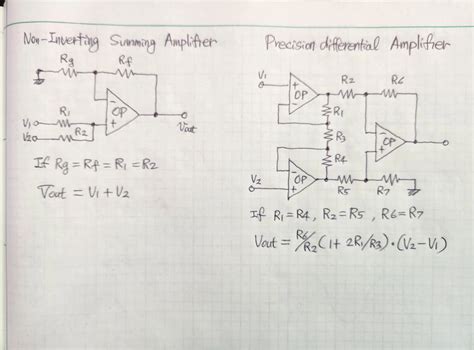 Non-Inverting Summing Amplifier
Rg
Rf
R1
V1
V2
R2
OP
-
+
Vout
If Rg = Rf = R1 = R2
Vout = V1 + V2
Precision differential Amplifier
V1
OP
-
+
R2
R6
R1
R3
OP
-
+
R4
V2
OP
-
+
R5
R7
If R1 = R4 , R2 = R5 , R6 = R7
Vout = R6/R2 (1 + 2R1/R3) • (V2 - V1)